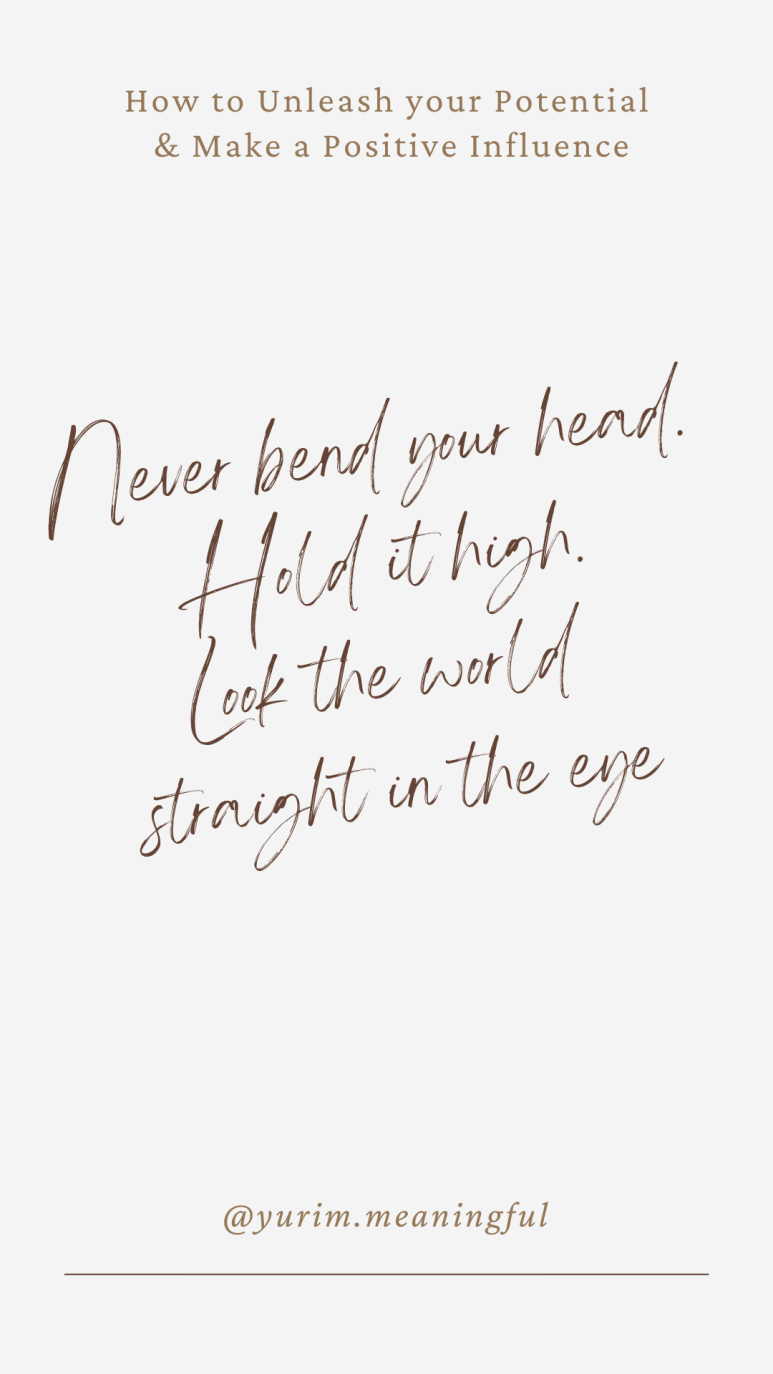 How to Unleash your Potential
& Make a Positive Influence
Never bend your head.
Hold it high.
Look the world
straight in the eye
@yurim.meaningful